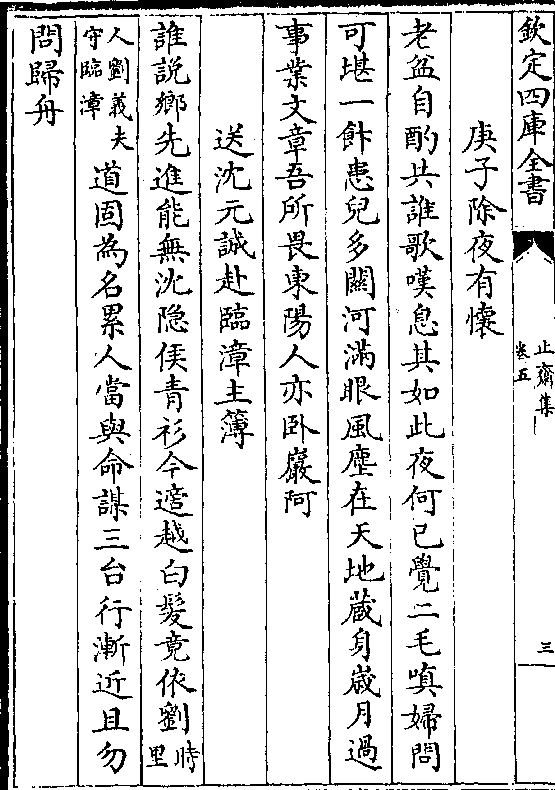 欽定四庫全書
止齋集
卷五
三
庚子除夜有懷
老盆自酌共誰歌嘆息其如此夜何已覺二毛嗔婦問
可堪一飰患兒多關河滿眼風塵在天地蔵身嵗月過
事業文章吾所畏東陽人亦卧巖阿
送沈元誠赴臨漳主簿
誰説鄉先進能無沈隐侯青衫今適越白髮竟依劉時里
人劉義夫守臨漳道固為名累人當與命謀三台行漸近且勿
問歸舟